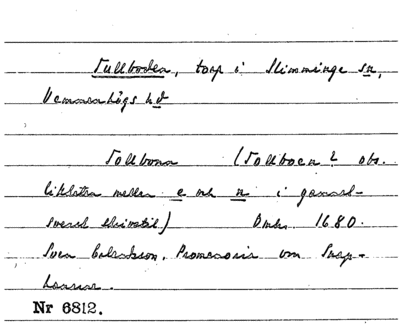 Tullboden, torp i Slimminge sn,
Vemmenhögs hd
Tollbona (Tollboca? obs.
likheten mellan c och n i gammal-
svensk skrivstil) Dmbr. 1680.
Sven Carlsson. Promemoria om Snap-
hanar.
Nr 6812.